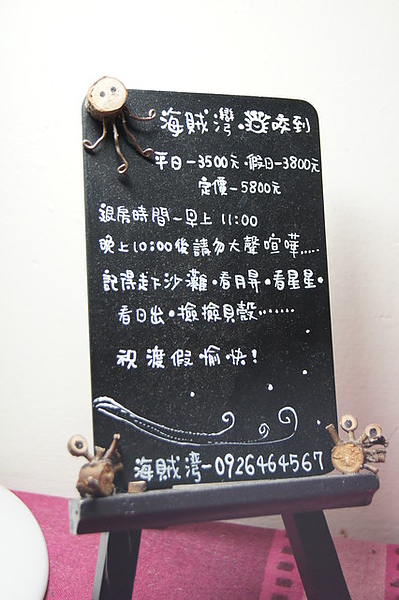 海賊灣·咬到
平日-3500元·假日-3800元
定價-5800元
退房時間~早上 11:00
晚上10:00後請勿大聲喧嘩.....
記得走下沙灘·看月昇·看星星·
看日出·撿撿貝殼.......
祝渡假愉快!
海賊灣-0926464567